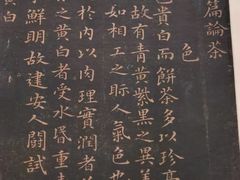 篇論茶
色
色貴白而餅茶多以珍膏
故有青黃紫黑之異
如相工之眎人氣色也
於內以肉理實潤者
之黃白者受水昏重
鮮明故建安人鬬試
黃白